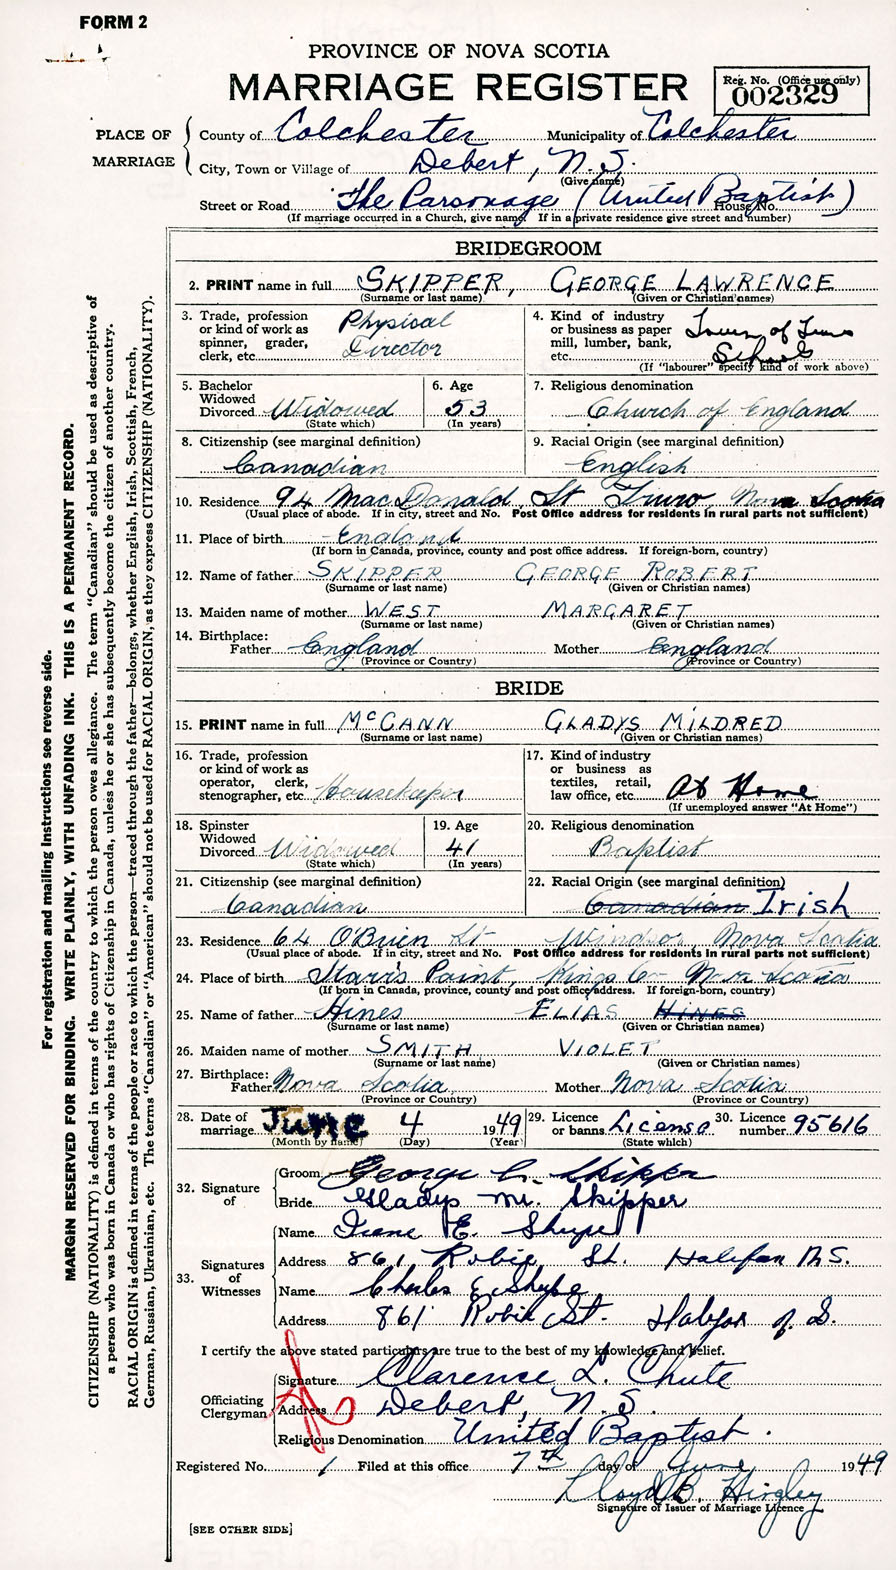 FORM 2
PROVINCE OF NOVA SCOTIA
MARRIAGE REGISTER
Reg. No. (Office use only)
002329
PLACE OF MARRIAGE
County of Colchester Municipality of Colchester
City, Town or Village of Debert, N.S.
(Give name)
Street or Road The Parsonage (United Baptist) House No.
(If marriage occurred in a Church, give name. If in a private residence give street and number)
BRIDEGROOM
2. PRINT name in full SKIPPER, GEORGE LAWRENCE
(Surname or last name) (Given or Christian names)
3. Trade, profession or kind of work as spinner, grader, clerk, etc. Physical Director
4. Kind of industry or business as paper mill, lumber, bank, etc. Town of Truro Schools
(If "labourer" specify kind of work above)
5. Bachelor Widowed Divorced Widowed
(State which)
6. Age 53
(In years)
7. Religious denomination
Church of England
8. Citizenship (see marginal definition)
Canadian
9. Racial Origin (see marginal definition)
English
10. Residence 94 MacDonald St Truro, Nova Scotia
(Usual place of abode. If in city, street and No. Post Office address for residents in rural parts not sufficient)
11. Place of birth England
(If born in Canada, province, county and post office address. If foreign-born, country)
12. Name of father SKIPPER GEORGE ROBERT
(Surname or last name) (Given or Christian names)
13. Maiden name of mother WEST MARGARET
(Surname or last name) (Given or Christian names)
14. Birthplace:
Father England Mother England
(Province or Country) (Province or Country)
BRIDE
15. PRINT name in full McCANN GLADYS MILDRED
(Surname or last name) (Given or Christian names)
16. Trade, profession or kind of work as operator, clerk, stenographer, etc. Housekeeper
17. Kind of industry or business as textiles, retail, law office, etc. At Home
(If unemployed answer "At Home")
18. Spinster Widowed Divorced Widowed
(State which)
19. Age 41
(In years)
20. Religious denomination
Baptist
21. Citizenship (see marginal definition)
Canadian
22. Racial Origin (see marginal definition)
Canadian Irish
23. Residence 64 O'Brien St Windsor, Nova Scotia
(Usual place of abode. If in city, street and No. Post Office address for residents in rural parts not sufficient)
24. Place of birth Starr's Point, Kings Co Nova Scotia
(If born in Canada, province, county and post office address. If foreign-born, country)
25. Name of father Hines ELIAS HINES
(Surname or last name) (Given or Christian names)
26. Maiden name of mother SMITH VIOLET
(Surname or last name) (Given or Christian names)
27. Birthplace:
Father Nova Scotia Mother Nova Scotia
(Province or Country) (Province or Country)
28. Date of marriage JUNE 4 1949
(Month by name) (Day) (Year)
29. Licence or banns License
(State which)
30. Licence number 95616
32. Signature of
Groom George L. Skipper
Bride Gladys M. Skipper
33. Signatures of Witnesses
Name Irene E. Shupe
Address 861 Robie St. Halifax N.S.
Name Charles E. Shupe
Address 861 Robie St. Halifax N.S.
I certify the above stated particulars are true to the best of my knowledge and belief.
Officiating Clergyman
Signature Clarence L. Chute
Address Debert, N.S.
Religious Denomination United Baptist.
Registered No. 1 Filed at this office 7th day of June 1949
Lloyd B. Hingley
Signature of Issuer of Marriage Licence
[SEE OTHER SIDE]
For registration and mailing instructions see reverse side.
MARGIN RESERVED FOR BINDING. WRITE PLAINLY, WITH UNFADING INK. THIS IS A PERMANENT RECORD.
CITIZENSHIP (NATIONALITY) is defined in terms of the country to which the person owes allegiance. The term "Canadian" should be used as descriptive of
a person who was born in Canada or who has rights of Citizenship in Canada, unless he or she has subsequently become the citizen of another country.
RACIAL ORIGIN is defined in terms of the people or race to which the person—traced through the father—belongs, whether English, Irish, Scottish, French,
German, Russian, Ukrainian, etc. The terms "Canadian" or "American" should not be used for RACIAL ORIGIN, as they express CITIZENSHIP (NATIONALITY).